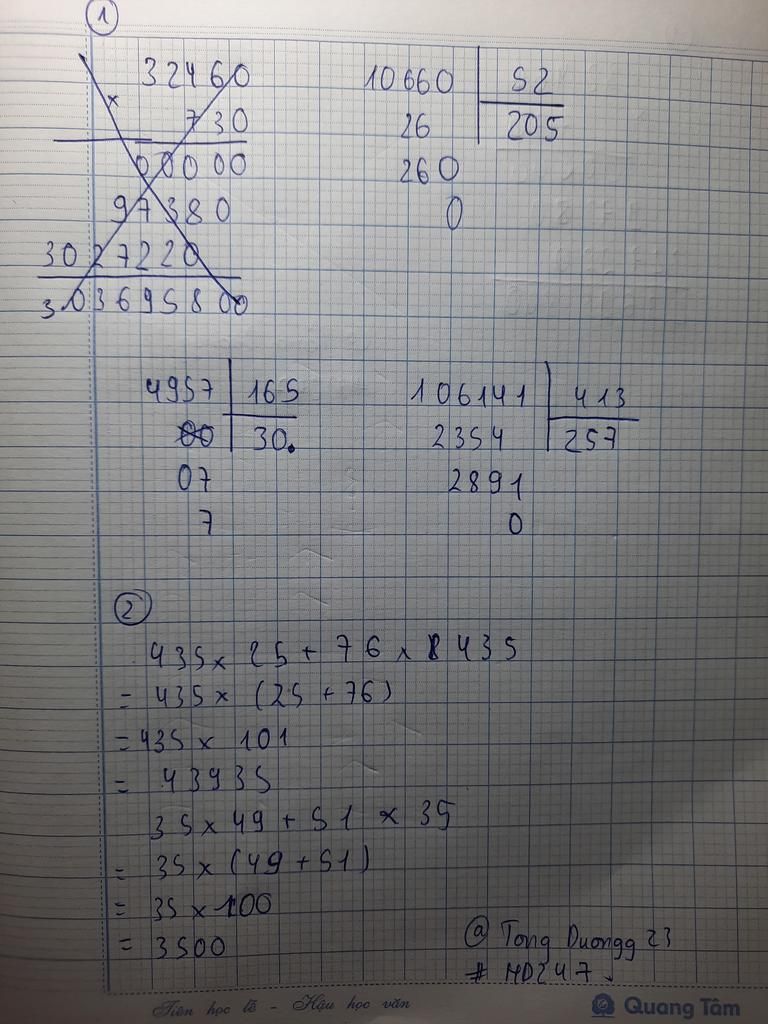 1
32460
×
730
00000
97380
3027220
3036958 00
10660 52
26 205
260
0
4957 165
00 30.
07
7
106141 413
2354 257
2891
0
2
435 × 25 + 76 × 435
= 435 × (25 + 76)
= 435 × 101
= 43935
35 × 49 + 51 × 35
= 35 × (49 + 51)
= 35 × 100
= 3500
@ Tong Duongg 23
# HD247
Tiên học lễ - Hậu học văn
Quang Tâm